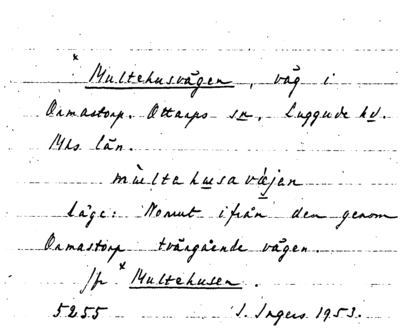 * Multehusvägen, väg i
Ormastorp. Ottarps sn. Luggude hd.
Mhs. län.
mùltahusavä́jen
Läge: Norrut ifrån den genom
Ormastorp tvärgående vägen.
Jfr * Multehusen.
5255 I. Ingers 1953.